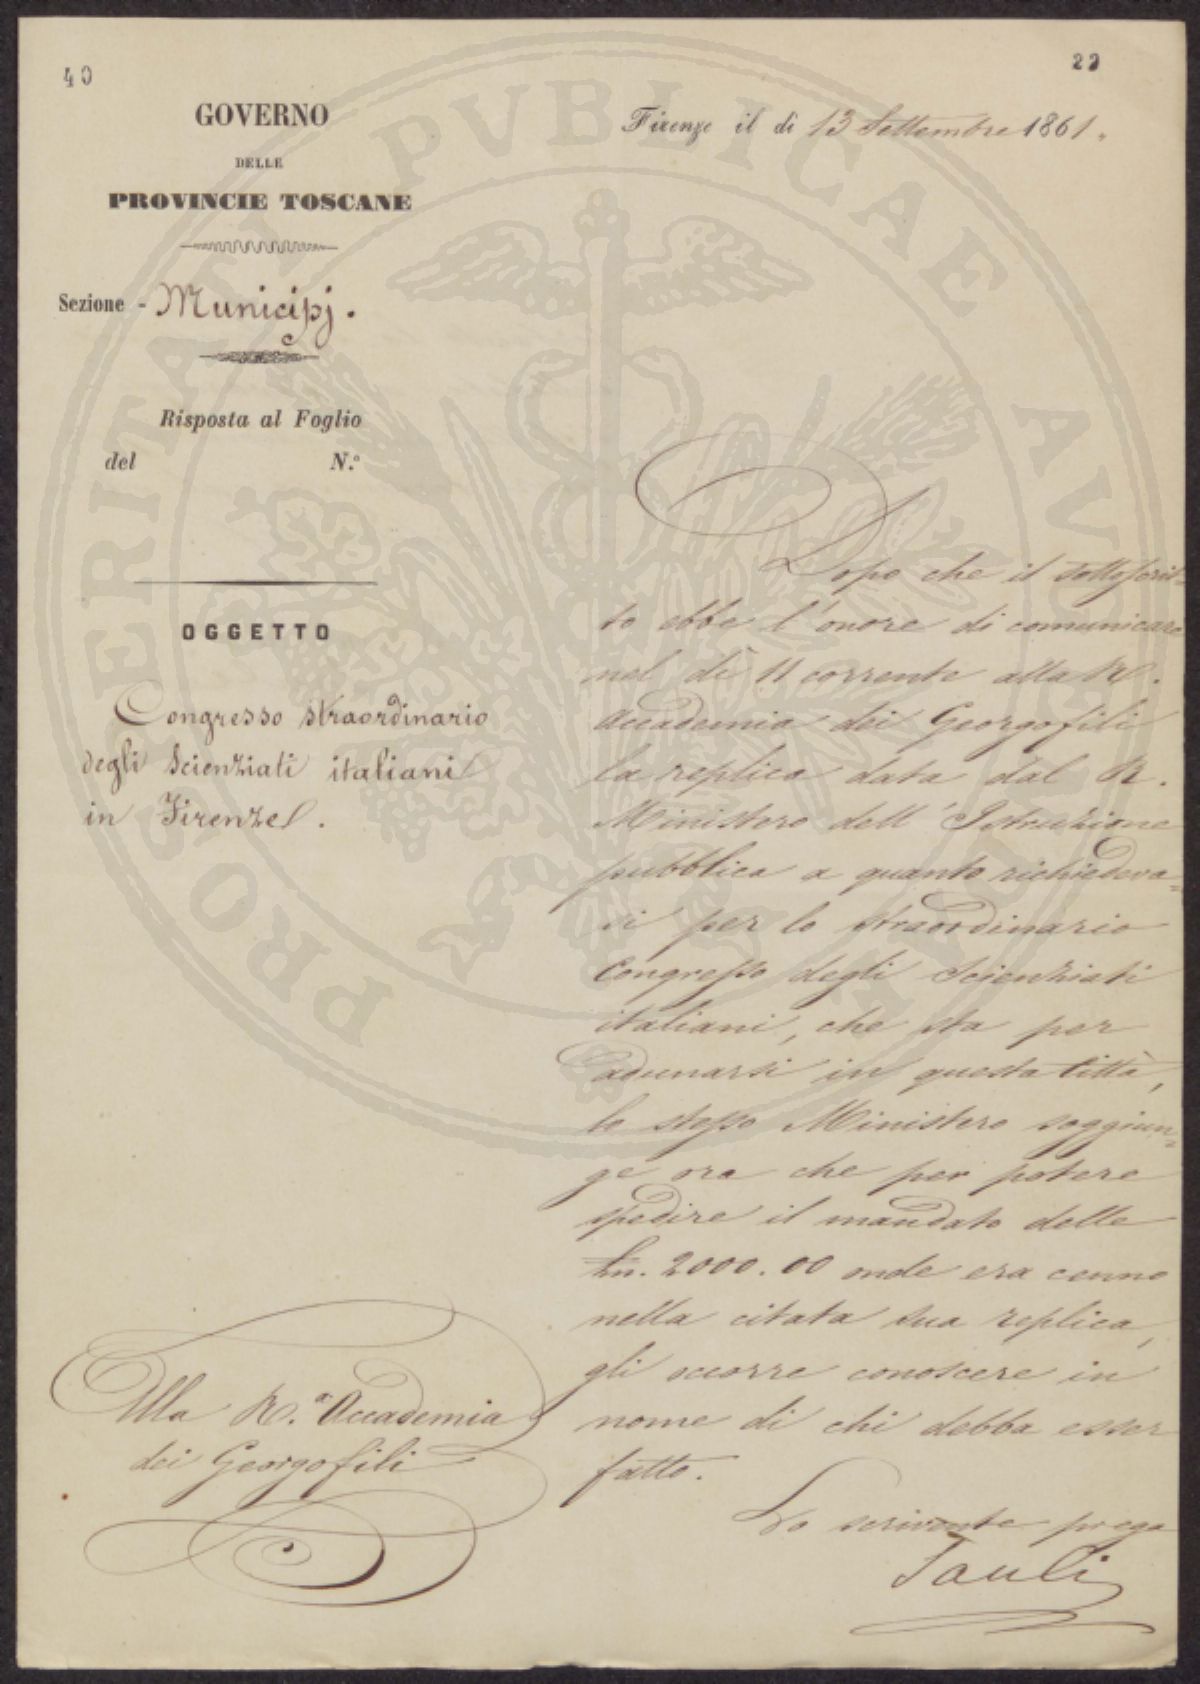 40
22
GOVERNO
DELLE
PROVINCIE TOSCANE
Sezione - Municipj.
Risposta al Foglio
del N.o
OGGETTO
Congresso straordinario
degli Scienziati italiani
in Firenze.
Alla R.a Accademia
dei Georgofili
Firenze il dì 13 Settembre 1861.
Dopo che il sottoscrit-
to ebbe l'onore di comunicare
nel dì 11 corrente alla R.
Accademia dei Georgofili
la replica data dal R.
Ministero dell'Istruzione
pubblica a quanto richiedeva-
si per lo straordinario
Congresso degli Scienziati
italiani, che sta per
adunarsi in questa Città,
lo stesso Ministero soggiun=
ge ora che per potere
spedire il mandato delle
Ln. 2000.00 onde era cenno
nella citata sua replica,
gli occorre conoscere in
nome di chi debba esser
fatto.
Lo scrivente prega
PROSPERITATI PVBLICAE AVGENDAE